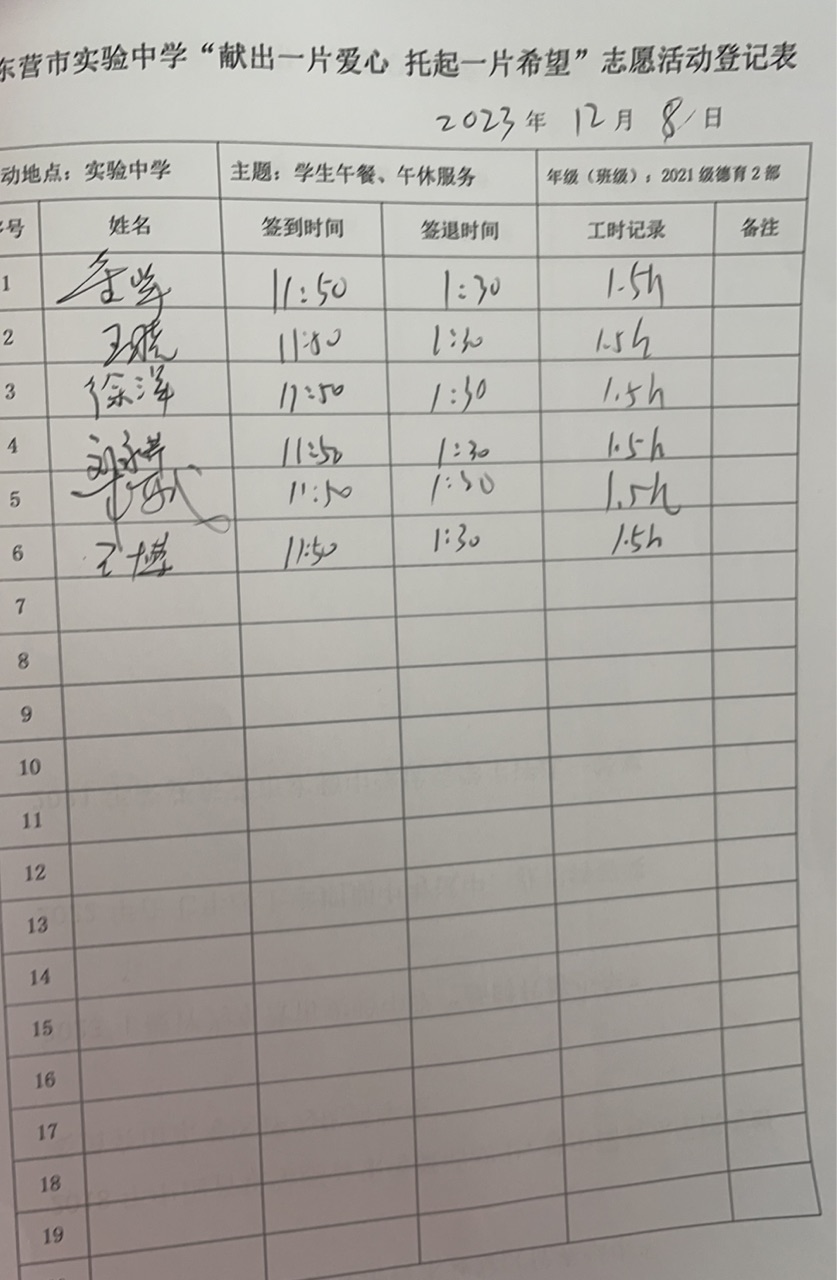 东营市实验中学“献出一片爱心 托起一片希望”志愿活动登记表
2023年 12月 8日
动地点：实验中学 主题：学生午餐、午休服务 年级（班级）：2021级德育2部
序号 姓名 签到时间 签退时间 工时记录 备注
1 11:50 1:30 1.5h
2 王晓 11:50 1:30 1.5h
3 徐洋 11:50 1:30 1.5h
4 11:50 1:30 1.5h
5 11:50 1:30 1.5h
6 王博 11:50 1:30 1.5h
7
8
9
10
11
12
13
14
15
16
17
18
19